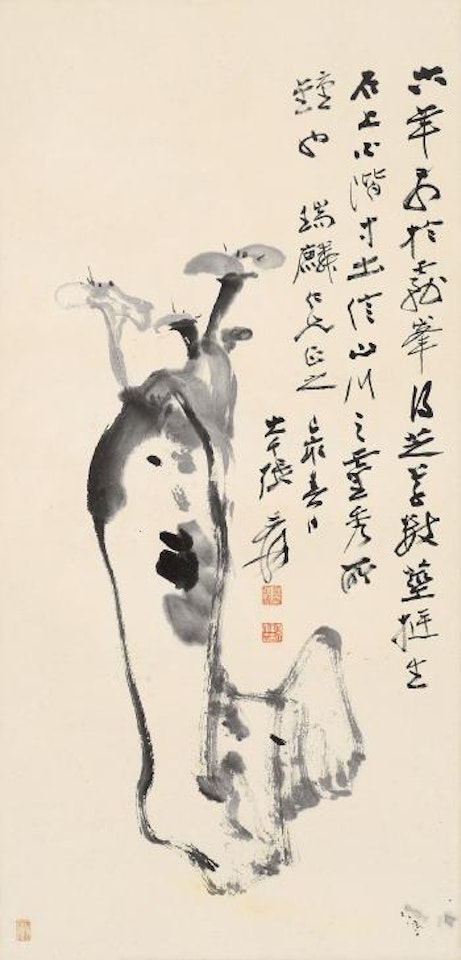 六年前於峯得芝草數莖挺生
石上階寸出信山川之靈秀所
鍾也 瑞麟仁兄正之
春日
大千張爰